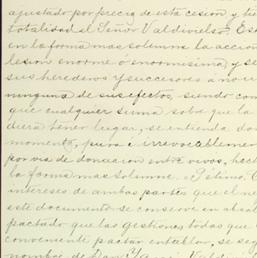 ajustado por precio de esta cesion y tie
totalidad el Señor Valdivielso, Es
en la forma mas solemne la acción
lesion enorme o enormisima y se
sus herederos y succesores a no in
ninguna de sus efectos, siendo con
que cualquier suma sobre que la
diera tener lugar, se entienda do
momento, pura e irrevocablemen
por via de donacion entre vivos, hech
la forma mas solemne. Setimo. C
intereses de ambas partes que el ne
este documento se conserve en absol
pactado que las gestiones todas que
conveniente pactar entablar, se seg
nombre de Don Valdi